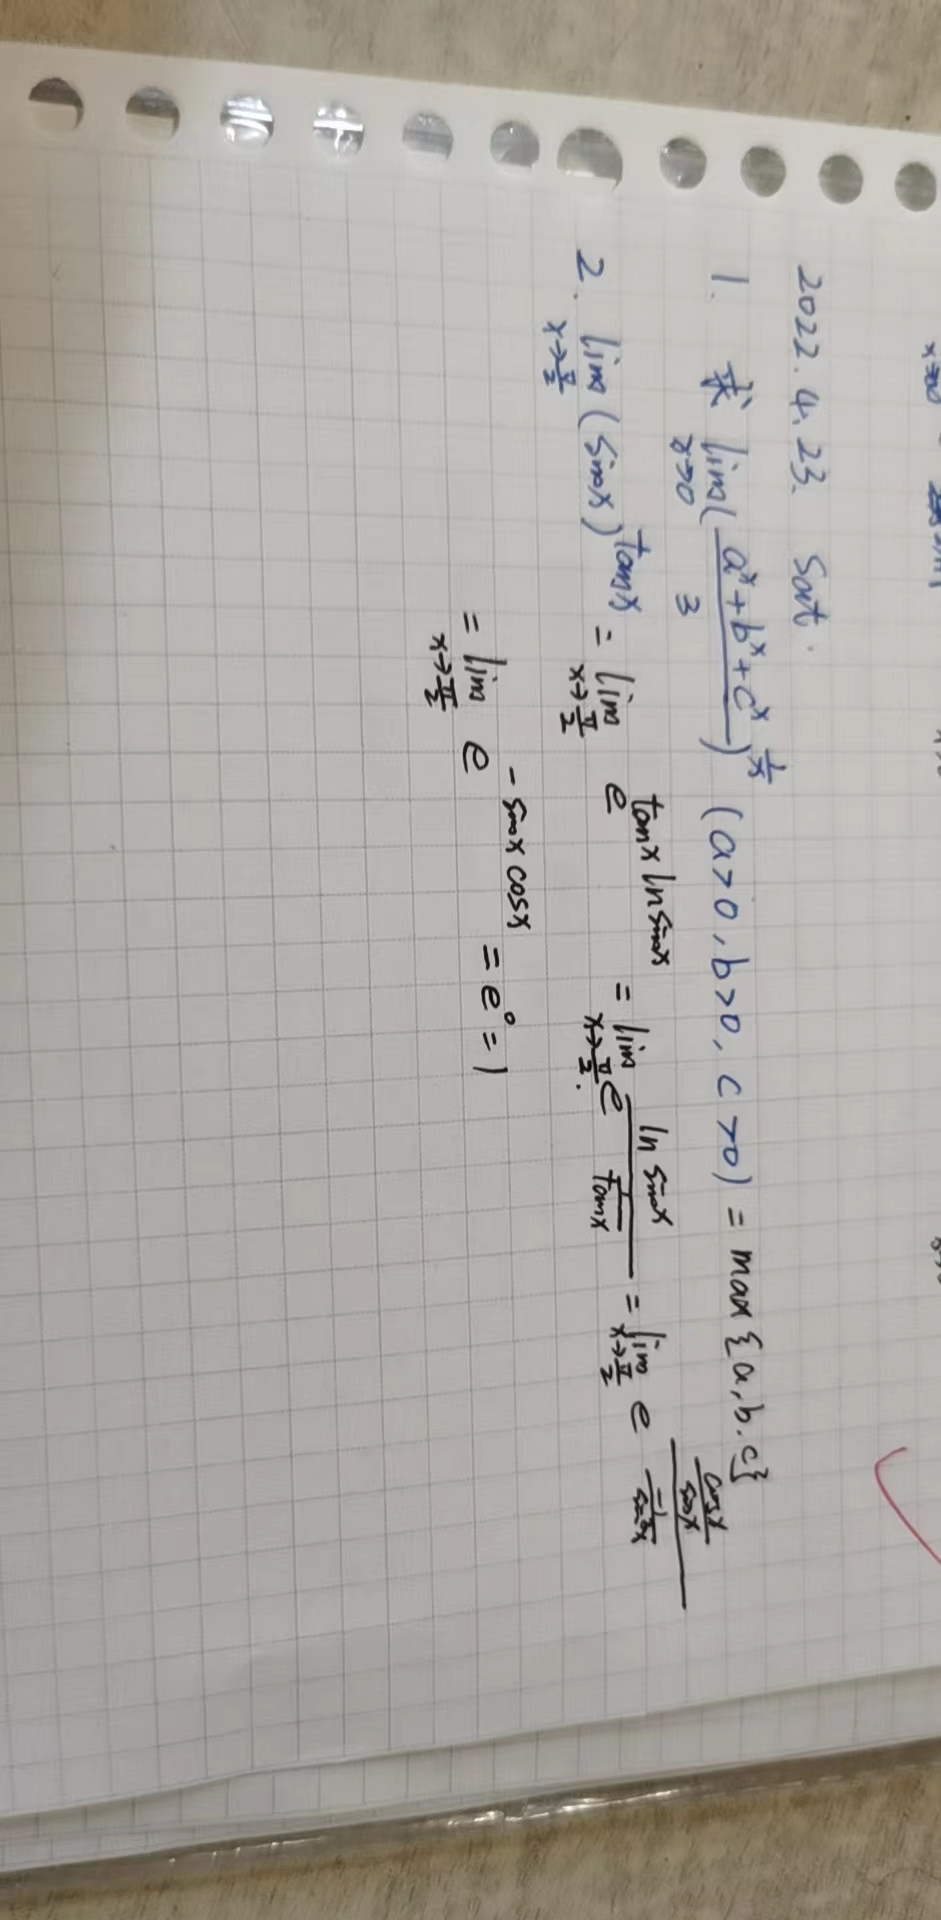 2022.4.23. Sat.
1. 求 lim_{x→0} ( (a^x+b^x+c^x) / 3 )^{1/x} (a>0, b>0, c>0) = max{a,b.c}
2. lim_{x→π/2} (sinx)^{tanx} = lim_{x→π/2} e^{tanx ln sinx} = lim_{x→π/2} e^{ln sinx / (1/tanx)} = lim_{x→π/2} e^{(cosx/sinx) / (-1/sin²x)}
= lim_{x→π/2} e^{-sinx cosx} = e^0 = 1